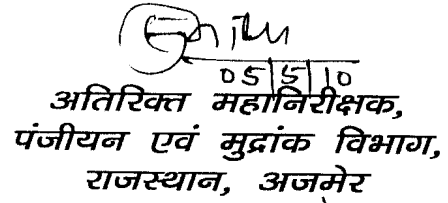 05/5/10
अतिरिक्त महानिरीक्षक,
पंजीयन एवं मुद्रांक विभाग,
राजस्थान, अजमेर